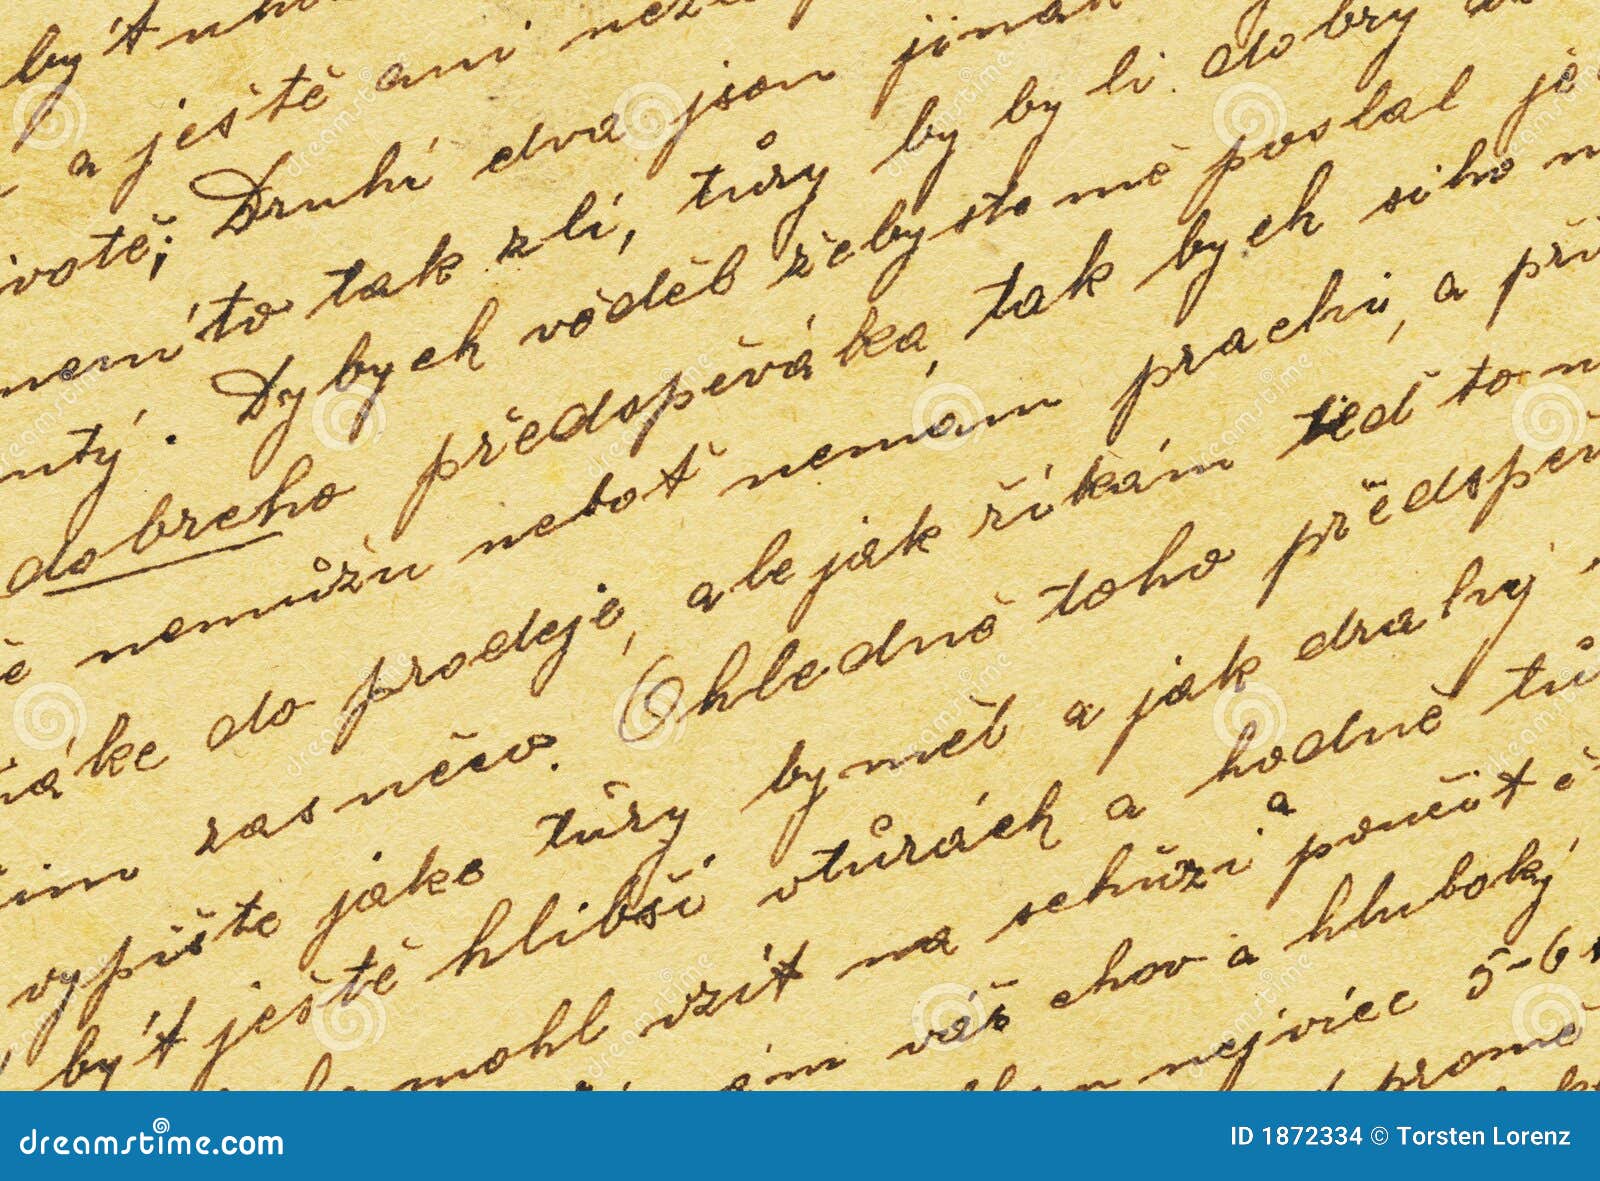 být
a ještě ani
životě; Druhí dva json jinak
není to tak zlí, tůry by byli dobrý
ntý. Dybych věděl žebyste mě poslal je
dobreho předopěváka, tak bych siho
nemůžu neboť nemám prachů, a při
náke do prodeje, ale jak říkám teď to
zas něco. Ohledně toho předspěv
vypište jake tůry by měl a jak drahý
být ještě hlibší vtůrách a hodně tů
mohl vzít na schůzi a poučit
váš chov a hluboký
nejvíec 5-6
promě
dreamstime.com
ID 1872334 © Torsten Lorenz